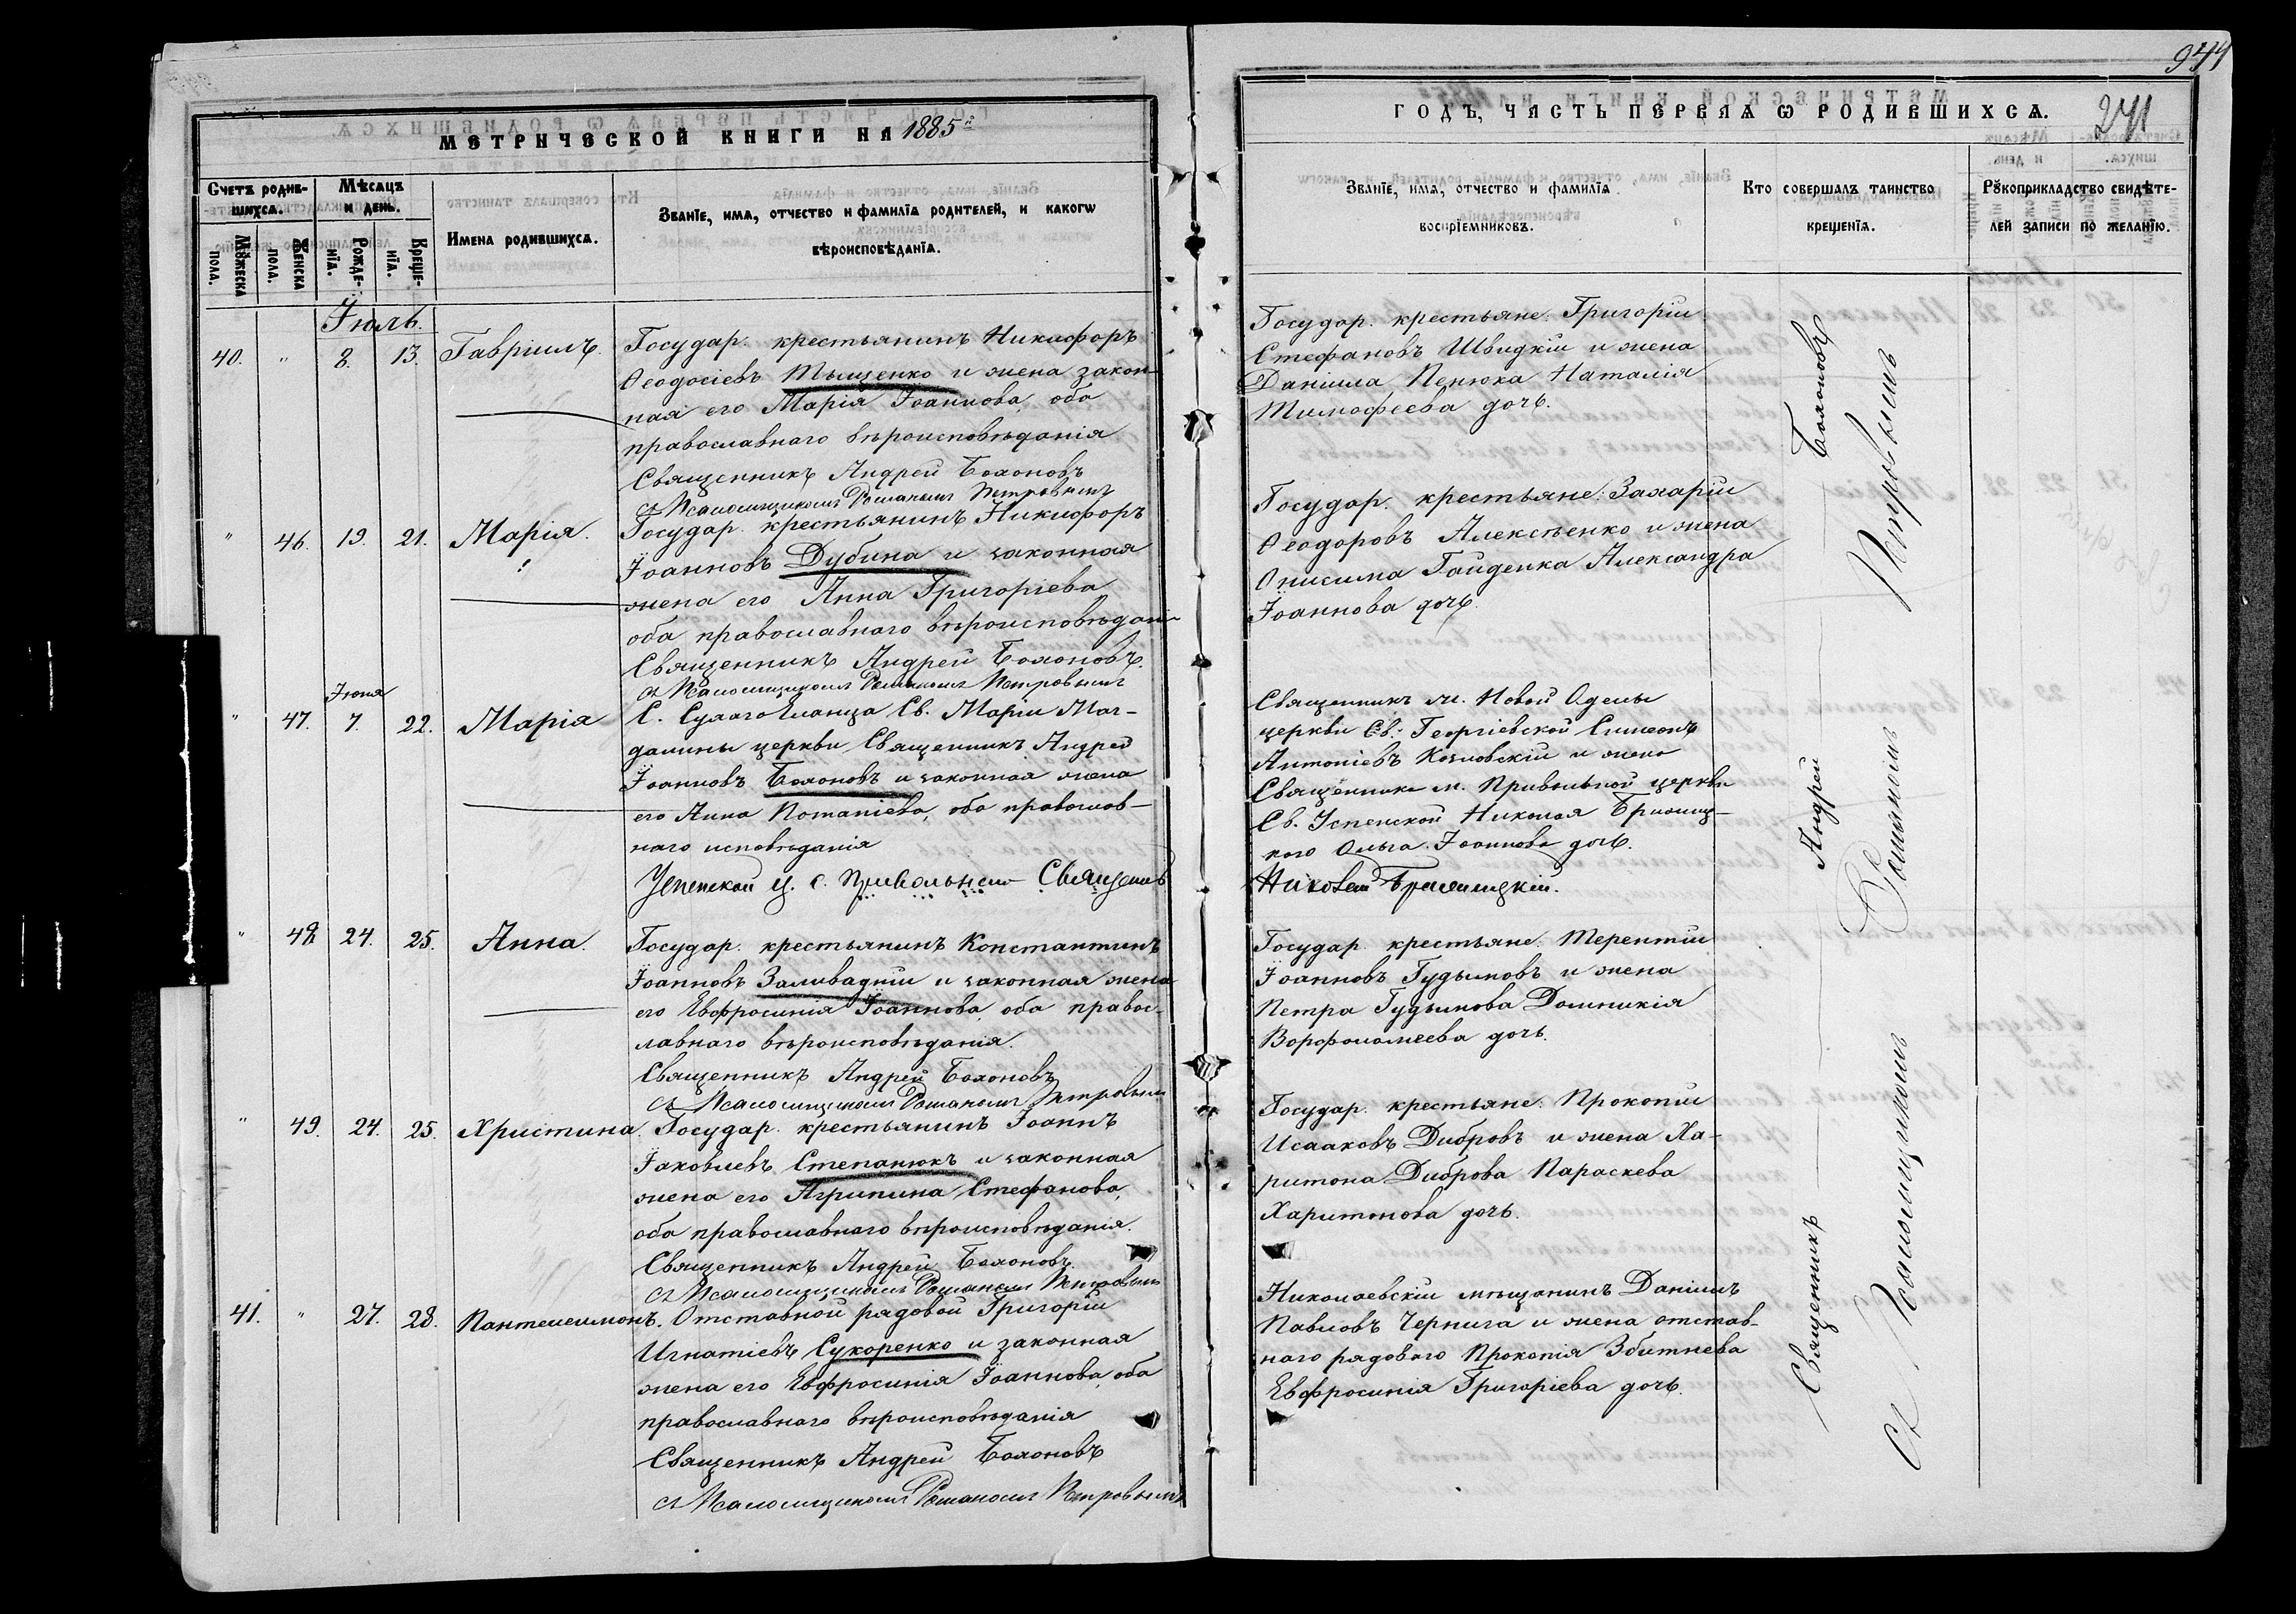 944
МЕТРИЧЕСКОЙ КНИГИ НА 1885й
Счетъ родив-
шихся.
Мѣсяцъ
и день.
Имена родившихся.
Званїе, имя, отчество и фамилїя родителей, и какогѡ
вѣроисповѣданїя.
Мꙋжеска
пола.
Женска
пола.
Рожде-
нїя.
Креще-
нїя.
Іюль.
40. " 8. 13. Гавріилъ.
Государ. крестьянинъ Никифоръ
Ѳеодосіевъ Тыщенко и жена закон-
ная его Марія Іоаннова, оба
православнаго вѣроисповѣданія
Священникъ Андрей Бохоновъ
съ Псаломщикомъ Романомъ Петровымъ
" 46. 19. 21. Марія.
Государ. крестьянинъ Никифоръ
Іоанновъ Дубина и законная
жена его Анна Григоріева
оба православнаго вѣроисповѣдані
Священникъ Андрей Бохоновъ.
съ Псаломщикомъ Романомъ Петровымъ
Іюня
" 47. 7. 22. Марія
С. Сухаго Еланца Св. Маріи Маг-
далины церкви Священникъ Андрей
Іоанновъ Бохоновъ и законная жена
его Анна Потапіева, оба православ-
наго исповѣданія
Успенской ц. с. Привольнаго Священникъ
" 48. 24. 25. Анна.
Государ. крестьянинъ Константинъ
Іоанновъ Заливадній и законная жена
его Евфросинія Іоаннова, оба правос-
лавнаго вѣроисповѣданія.
Священникъ Андрей Бохоновъ
съ Псаломщикомъ Романомъ Петровымъ
" 49. 24. 25. Христина.
Государ. крестьянинъ Іоаннъ
Іаковлевъ Степанюкъ и законная
жена его Агрипина Стефанова,
оба православнаго вѣроисповѣданія.
Священникъ Андрей Бохоновъ.
съ Псаломщикомъ Романомъ Петровымъ
41. " 27. 28. Пантелеимонъ.
Отставной рядовой Григорій
Игнатіевъ Сукоренко и законная
жена его Евфросинія Іоаннова, оба
православнаго вѣроисповѣданія
Священникъ Андрей Бохоновъ
съ Псаломщикомъ Романомъ Петровымъ
ГОДЪ, ЧАСТЬ ПЕРВАЯ Ѡ РОДИВШИХСЯ.
241
Званїе, имя, отчество и фамилїя
воспрїемниковъ.
Кто совершалъ таинство
крещенїя.
Рꙋкоприкладство свидѣте-
лей записи по желанїю.
Государ. крестьяне: Григорій
Стефановъ Швидкій и жена
Даніила Пенюка Наталія
Тимофеева дочь.
Государ. крестьяне: Захарій
Ѳеодоровъ Алексѣенко и жена
Онисима Гайденка Александра
Іоаннова дочь.
Священникъ м. Новой Одессы
церкви Св: Георгіевской Симеонъ
Антоніевъ Козловскій и жена
Священника м. Привольной церкви
Св. Успенской Николая Брилиц-
кого Ольга Іоаннова дочь.
Николай
Государ. крестьяне: Терентій
Іоанновъ Гудымовъ и жена
Петра Гудымова Домникія
Ворфоломеева дочь.
Государ. крестьяне: Прокопій
Исааковъ Дибровъ и жена Ха-
ритона Диброва Параскева
Харитонова дочь.
Николаевскій мѣщанинъ Даніилъ
Павловъ Чернига и жена отстав-
наго рядоваго Прокопія Збитнева
Евфросинія Григоріева дочь.
Священникъ Андрей Бохоновъ
съ Псаломщикомъ Романомъ Петровымъ